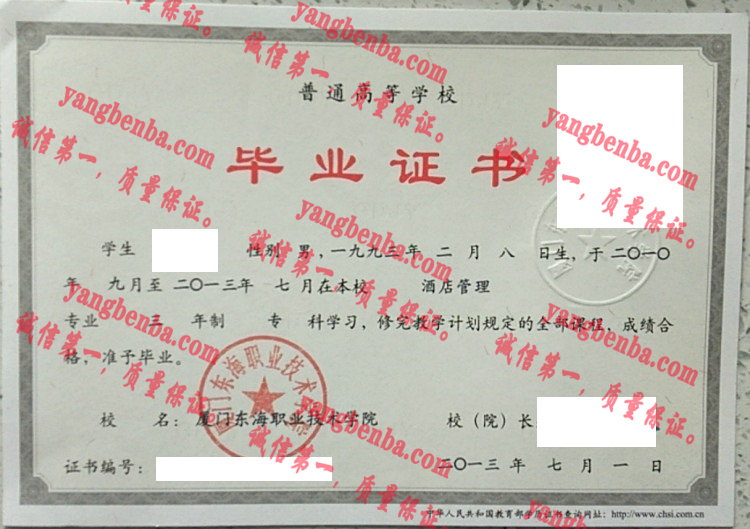 普通高等学校
毕业证书
学生 性别 男，一九九三年 二 月 八 日生，于二〇一〇
年 九月至 二〇一三年 七 月在本校 酒店管理
专业 三 年制 专 科学习，修完教学计划规定的全部课程，成绩合
格，准予毕业。
校 名：厦门东海职业技术学院 校（院）长
证书编号： 二〇一三 年 七 月 一 日
中华人民共和国教育部学历证书查询网址：http://www.chsi.com.cn
厦门东海职业技术学院
yangbenba.com
诚信第一，质量保证。
yangbenba.com
诚信第一，质量保证。
yangbenba.com
诚信第一，质量保证。
yangbenba.com
诚信第一，质量保证。
yangbenba.com
诚信第一，质量保证。
yangbenba.com
诚信第一，质量保证。
yangbenba.com
诚信第一，质量保证。
yangbenba.com
诚信第一，质量保证。
yangbenba.com
诚信第一，质量保证。